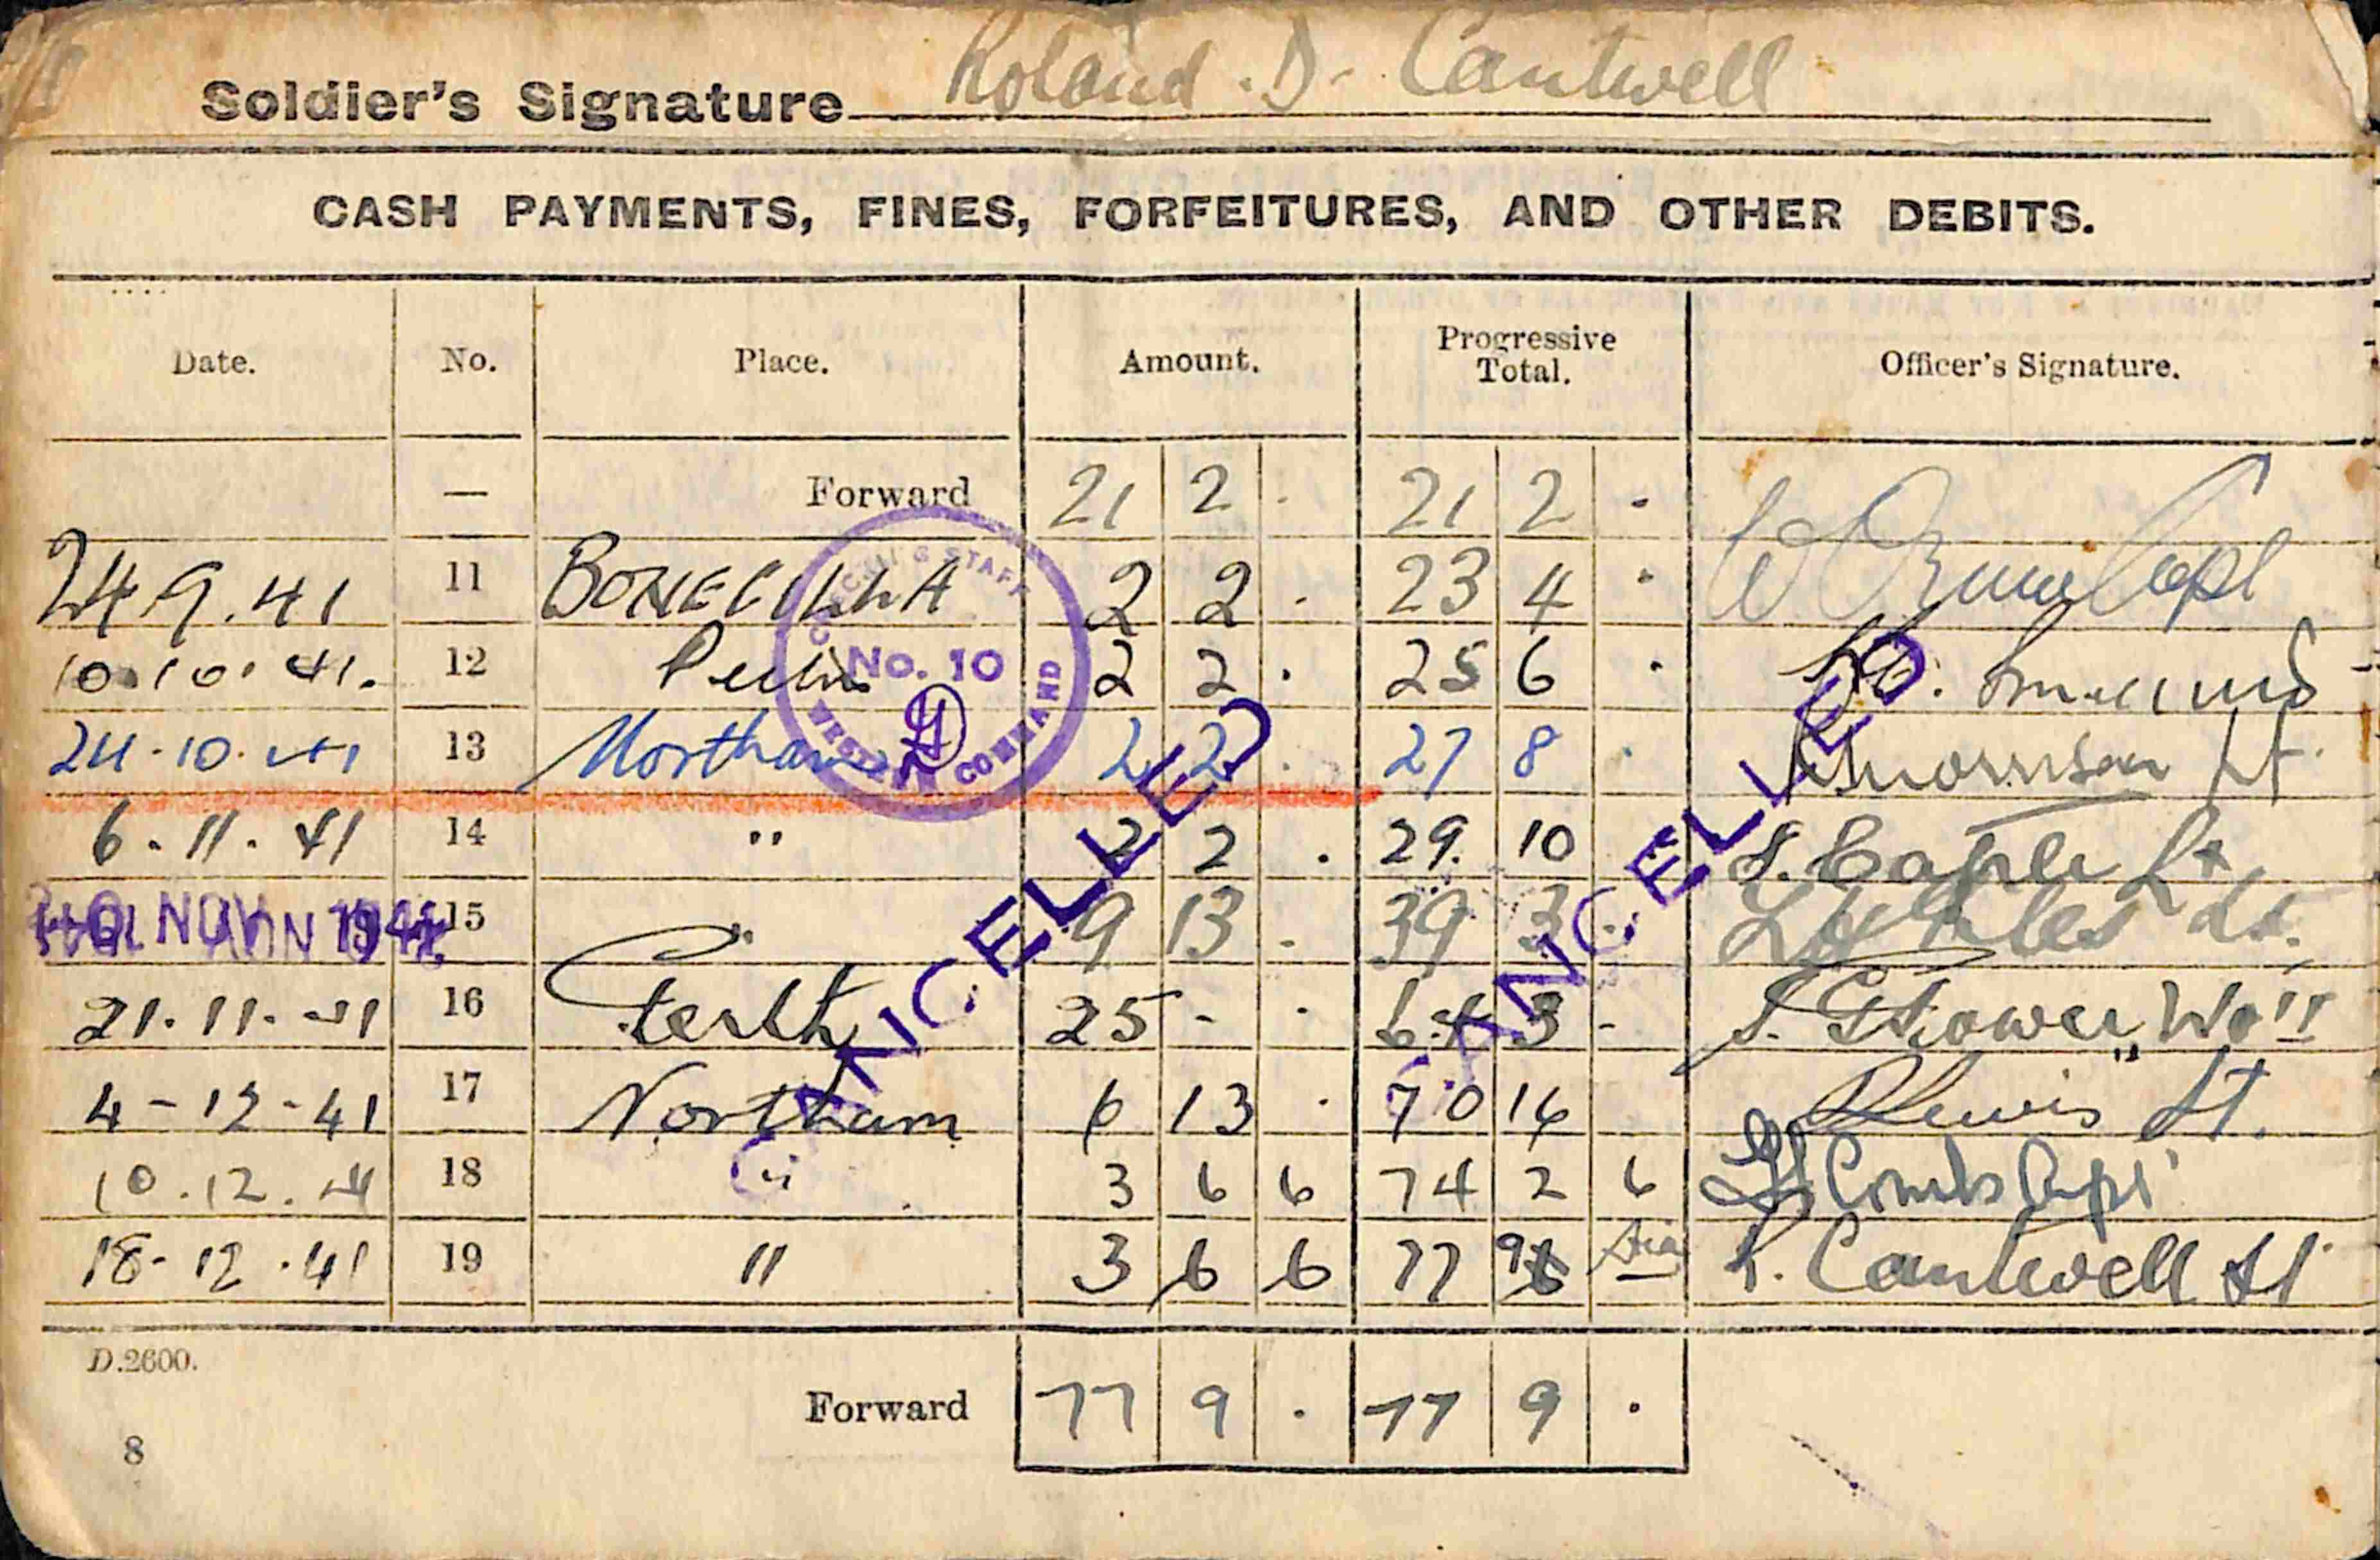 Soldier's Signature Roland . D. Cantwell
CASH PAYMENTS, FINES, FORFEITURES, AND OTHER DEBITS.
Date. No. Place. Amount. Progressive Total. Officer's Signature.
— Forward 21 2 . 21 2 .
24.9.41 11 BONEGILLA 2 2 . 23 4 . Capt
10.10.41. 12 Perth 2 2 . 25 6 .
24.10.41 13 Northam 2 2 . 27 8 . Morrison Lt.
6.11.41 14 " 2 2 . 29. 10 Lt
NOV 1941 15 " 9 13 . 39 3 . Lt.
21.11.41 16 Perth 25 - . 64 3 - WO II
4-12-41 17 Northam 6 13 . 70 16 Lewis Lt.
10.12.41 18 " 3 6 6 74 2 6 Capt
18-12.41 19 " 3 6 6 77 9 R. Cantwell Lt
No. 10
WESTERN COMMAND
CANCELLED
CANCELLED
D.2600.
Forward 77 9 . 77 9 .
8